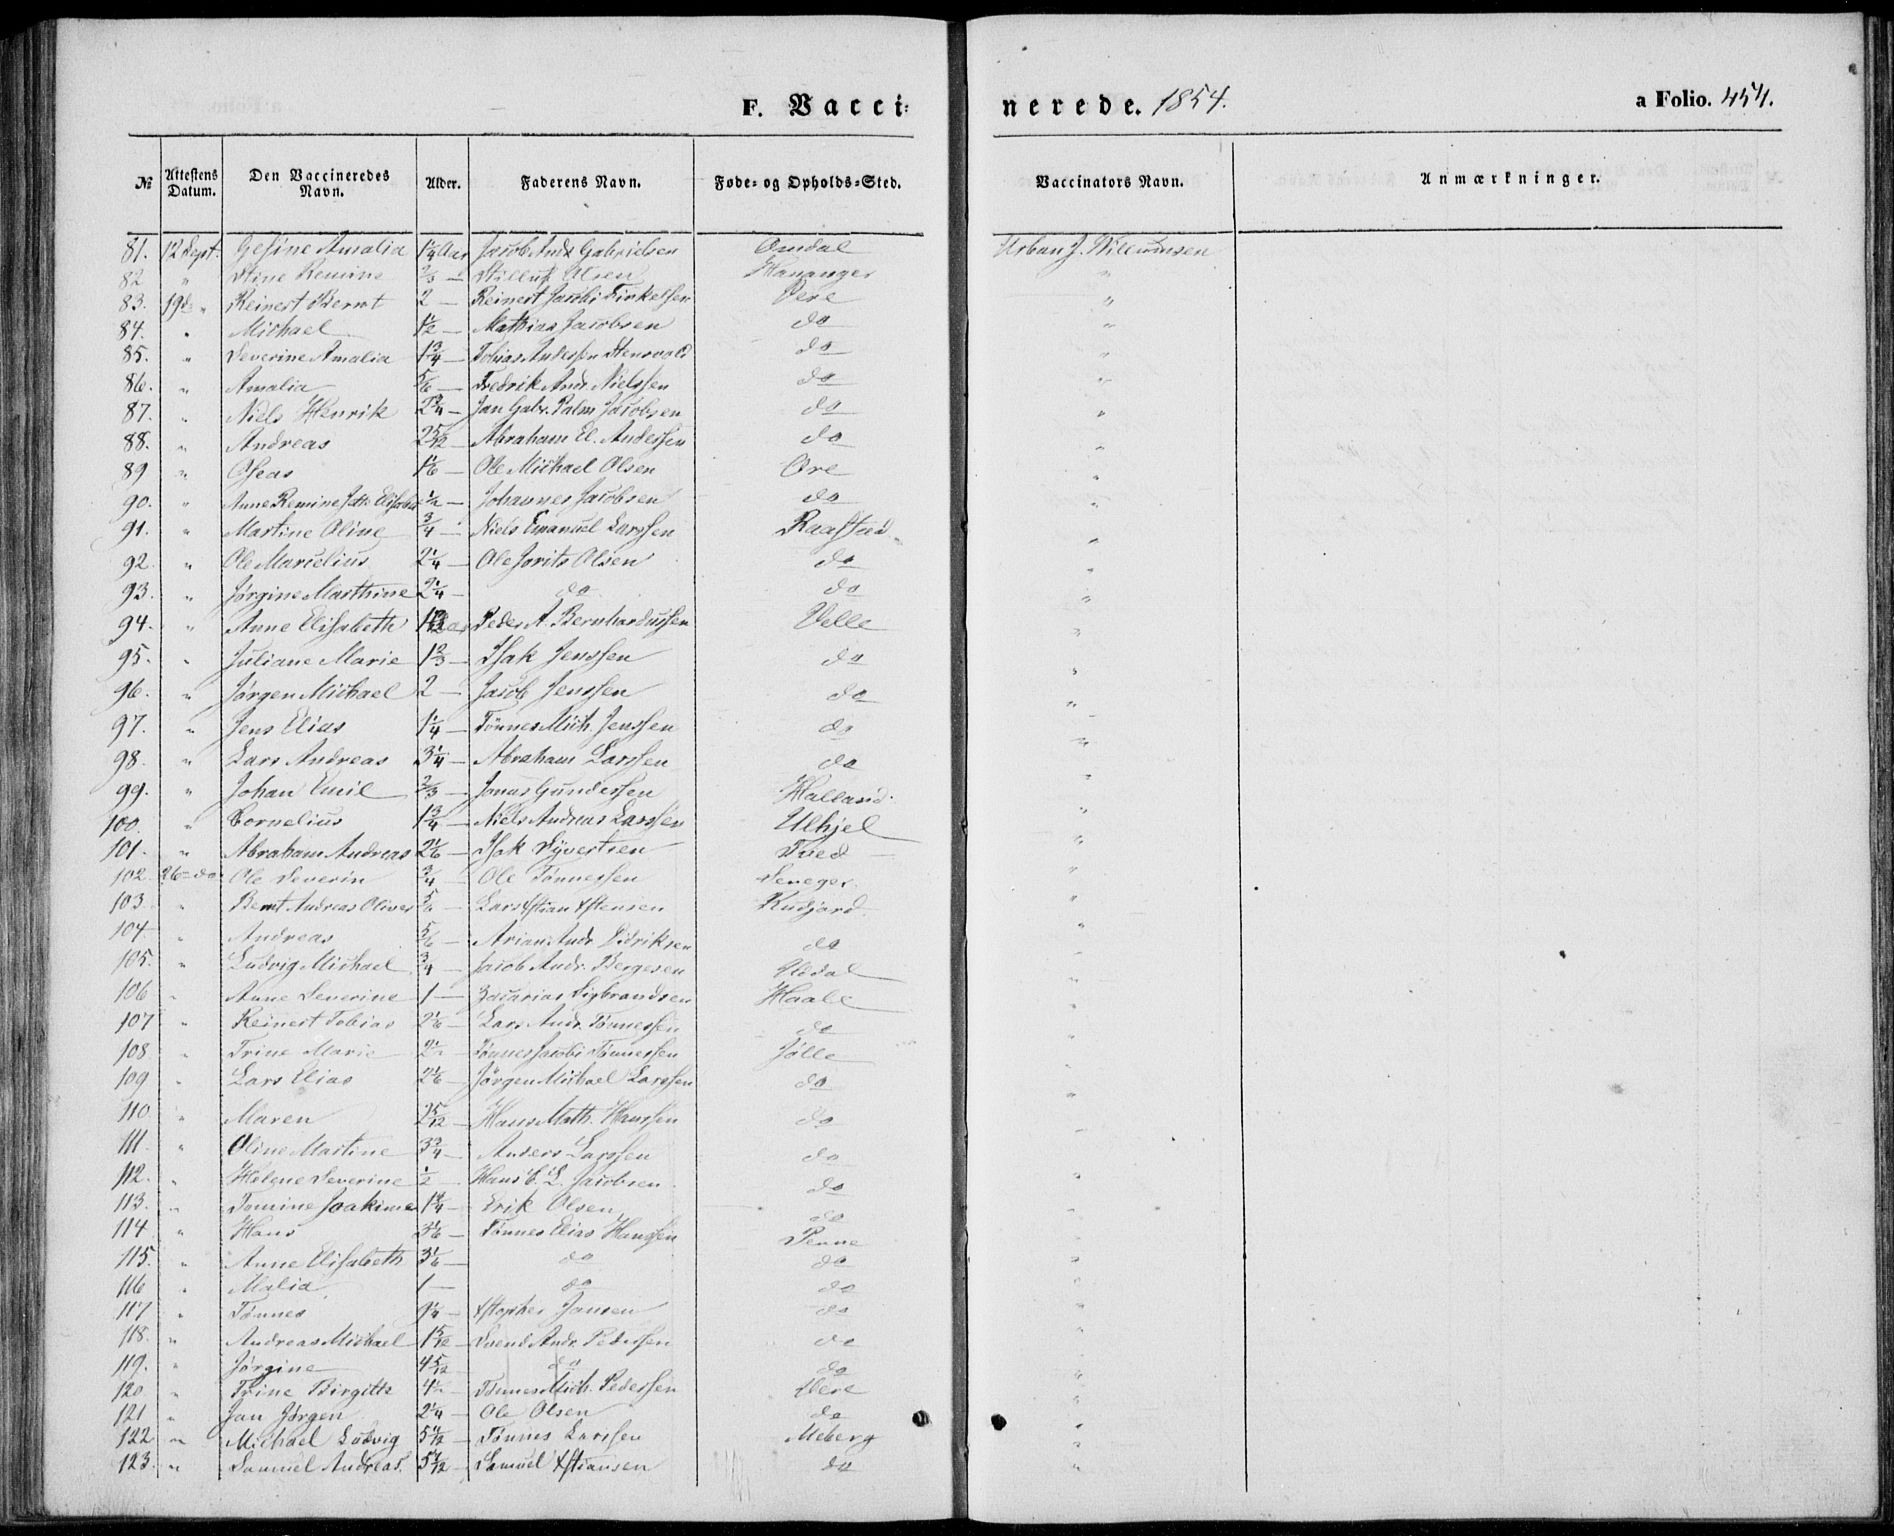 F. Vacci-
nerede. 1854.
a Folio. 454.
№ Attestens Datum. Den Vaccineredes Navn. Alder. Faderens Navn. Føde- og Opholds-Sted. Vaccinators Navn. Anmærkninger.
81. 12 Sept. Gesine Amalia 1¼ Aar Jacob Andr Gabrielsen Omdal Urban J. Willumsen
82 " Stine Remine ⅔ — Olsen Hananger "
83. 19 d " Reinert Bernt 2 — Reinert Jacobi Vere "
84. " Michael 1½ — Mathias Jacobsen do "
85. " Severine Amalia 1¾ — Tobias Anderssen Stensvold do "
86. " Amalia ⅚ — Fredrik Andr. Nielssen do "
87. " Niels Henrik 2¾ — Jan Gabr. Palm Jacobsen do "
88. " Andreas 2 5/12 — Abraham El. Anderssen do "
89 " Oseas 1⅙ — Ole Michael Olsen Ore "
90. " Anne Remine ½ — Johannes Jacobsen do "
91. " Martine Oline ¾ — Niels Emanuel Larssen Raastad "
92. " Ole Marcelius 2¼ — Ole Jorits Olsen do "
93. " Jørgine Marthine 2¼ — do do "
94. " Anne Elisabeth Peder A. Bernhardussen Velle "
95. " Juliane Marie 1⅔ — Isak Jenssen do "
96. " Jørgen Michael 2 — Jacob Jenssen do "
97. " Jens Elias 1¼ — Tönnes Mich. Jenssen do "
98. " Lars Andreas 3¼ — Abraham Larssen do "
99. " Johan Emil ⅔ — Jonas Gunderssen "
100. " Cornelius 1¾ — Niels Andreas Larssen Ulhjel "
101. " Abraham Andreas 2⅙ — Isak Syvertsen Tved "
102. 26 do Ole Severin ¾ — Ole Tönnessen "
103. " Bernt Andreas Oliver ⅚ — Lars Xstian Xstensen Rudjord "
104 " Andreas ⅚ — Arian Andr Didriksen do "
105. " Ludvig Michael ¾ — Jacob Andr. Bergesen "
106 " Anne Severine 1 — Zacarias Sigbrandsen Haale "
107 " Reinert Tobias 2⅙ — Lars Andr. Tönnessen do "
108 " Trine Marie 2½ — Tönnes Jacobi Tönnessen Jølle "
109 " Lars Elias 2⅙ — Jörgen Michael Larssen do "
110. " Maren 2 5/12 — Hans Math. Hanssen do
111. " Oline Martine 3¾ — Anders Larssen do
112. " Helene Severine ½ — Hans C. L. Jacobsen do "
113. " Tomine Joakime 1¼ — Erik Olsen do "
114 " Hans — Tönnes Elias Hanssen Penne "
115. " Anne Elisabeth 3⅙ — do do "
116 " Malia 1 — do do "
117 " Tönnes — Xstopher Jansen do "
118. " Andreas Michael 1 5/12 — Svend Andr. Pederssen do "
119. " Jörgine 4 5/12 do do "
120 " Trine Birgitte 4½ — Tönnes Mich. Pederssen Vere "
121 " Jan Jörgen 2¼ — Ole Olsen do "
122 " Michael Ludvig — Tönnes Larssen Meberg "
123. " Samuel Andreas — Samuel Xstiansen do "